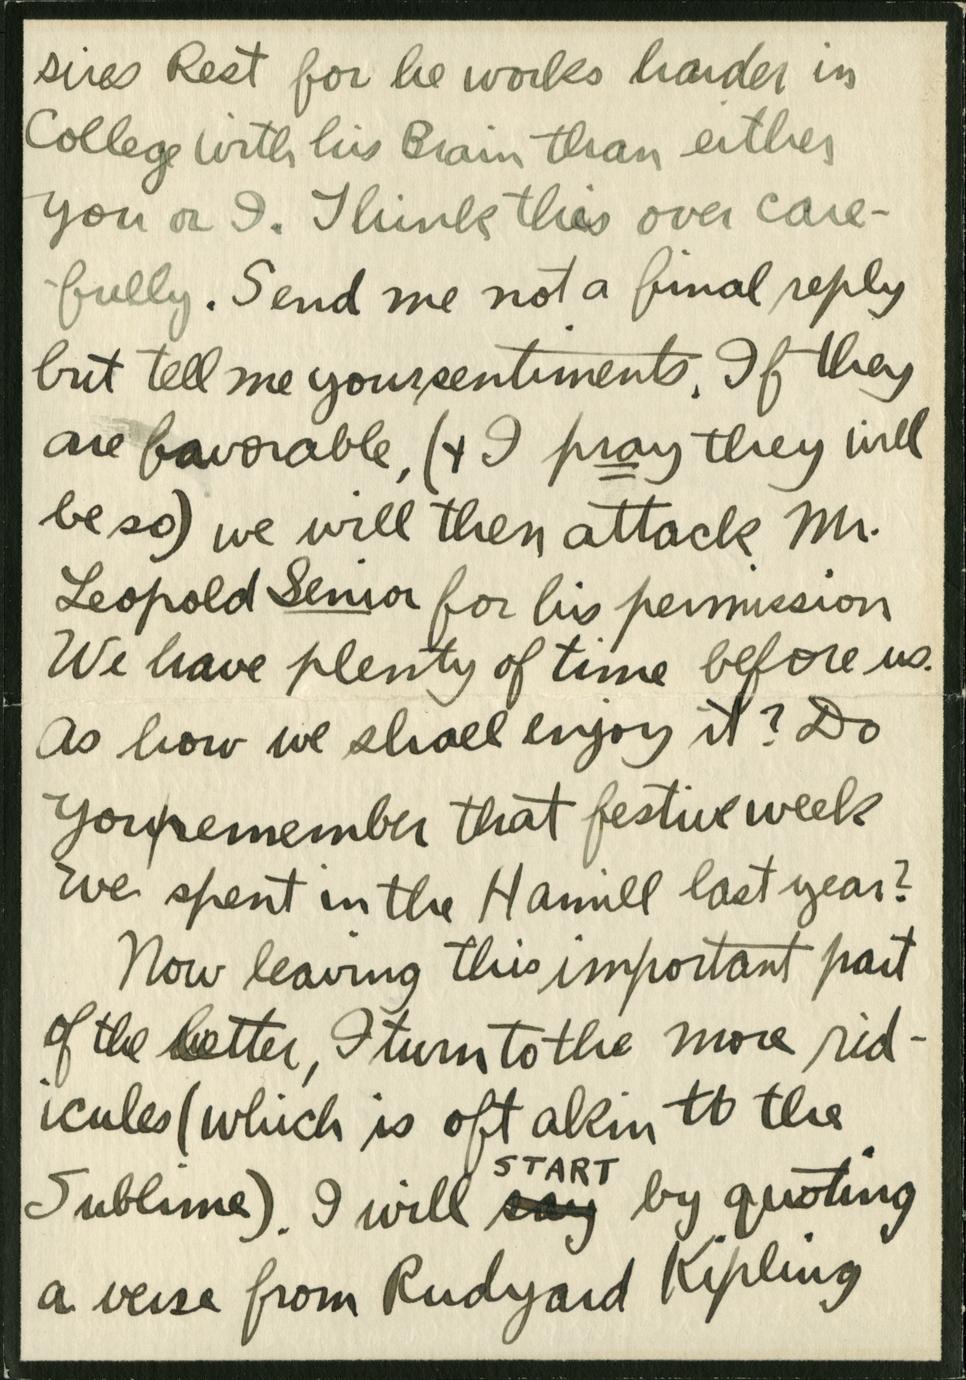 sires Rest for he works harder in
College with his Brain than either
you or I. Think this over care-
-fully. Send me not a final reply
but tell me your sentiments. If they
are favorable, (& I pray they will
be so) we will then attack Mr.
Leopold Senior for his permission
We have plenty of time before us.
As how we shall enjoy it? Do
you remember that festive week
we spent in the Hamill last year?
Now leaving this important part
of the letter, I turn to the more rid-
icules (which is oft akin to the
Sublime). I will say START by quoting
a verse from Rudyard Kipling